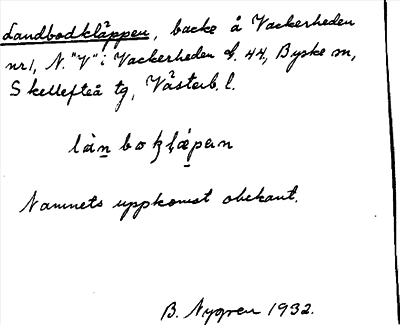 Landbodkläppen, backe å Vackerheden
nr 1, N. "V" i Vackerheden bl. 44, Byske sn,
Skellefteå tg, Västerb. l.
Namnets uppkomst obekant.
B. Nygren 1932.